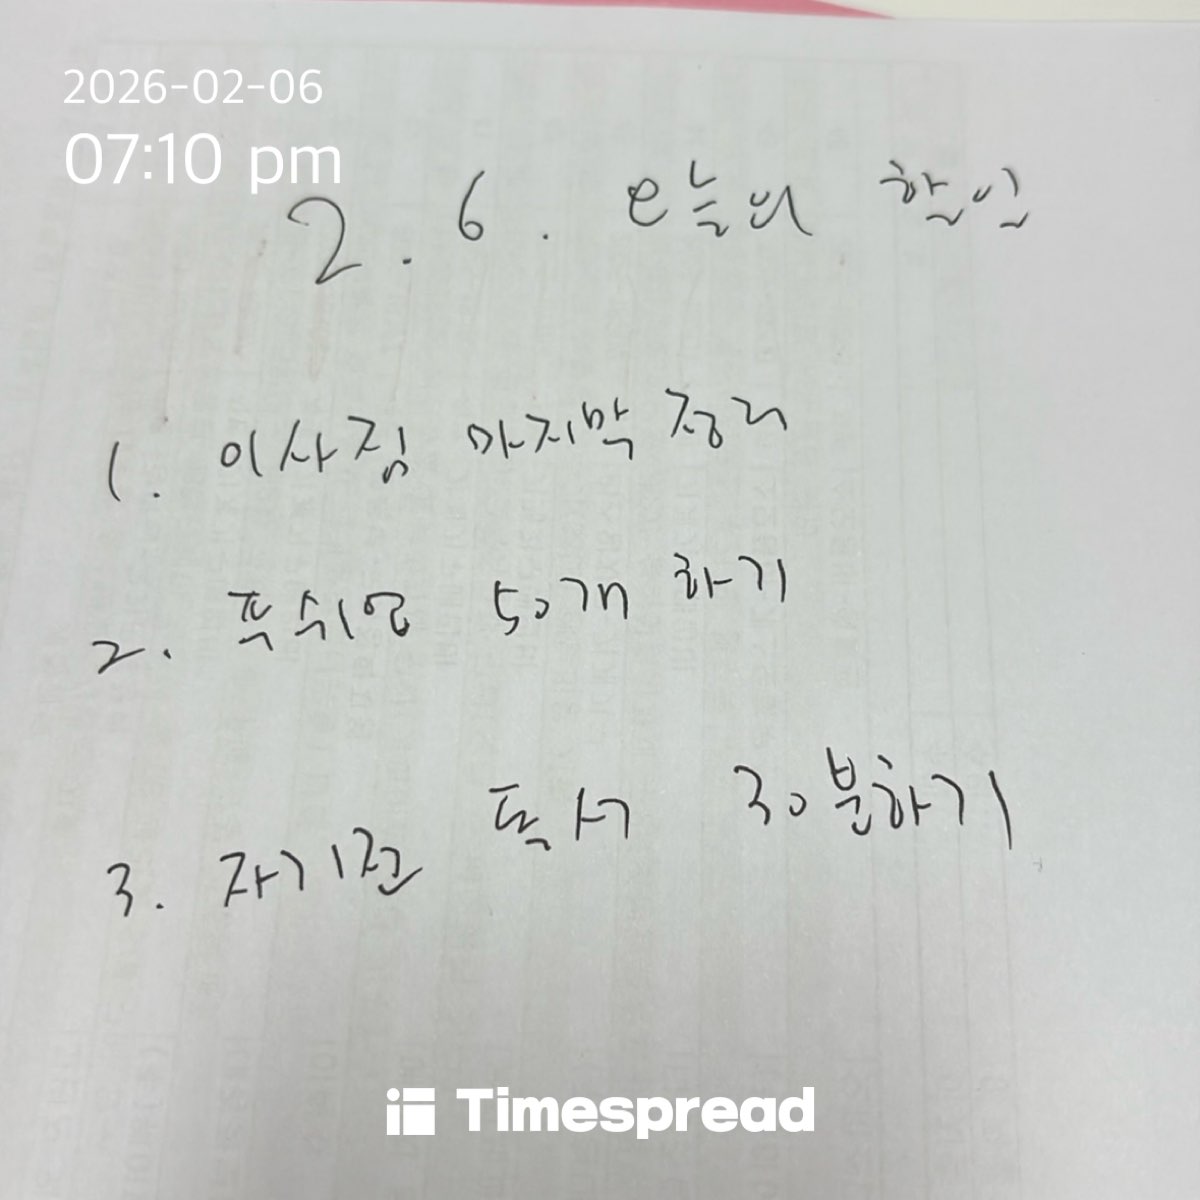 2026-02-06
07:10 pm
2.6. 오늘의 할일
1. 이사짐 마지막 정리
2. 푹쉬업 50개 하기
3. 자기전 독서 30분하기
Timespread